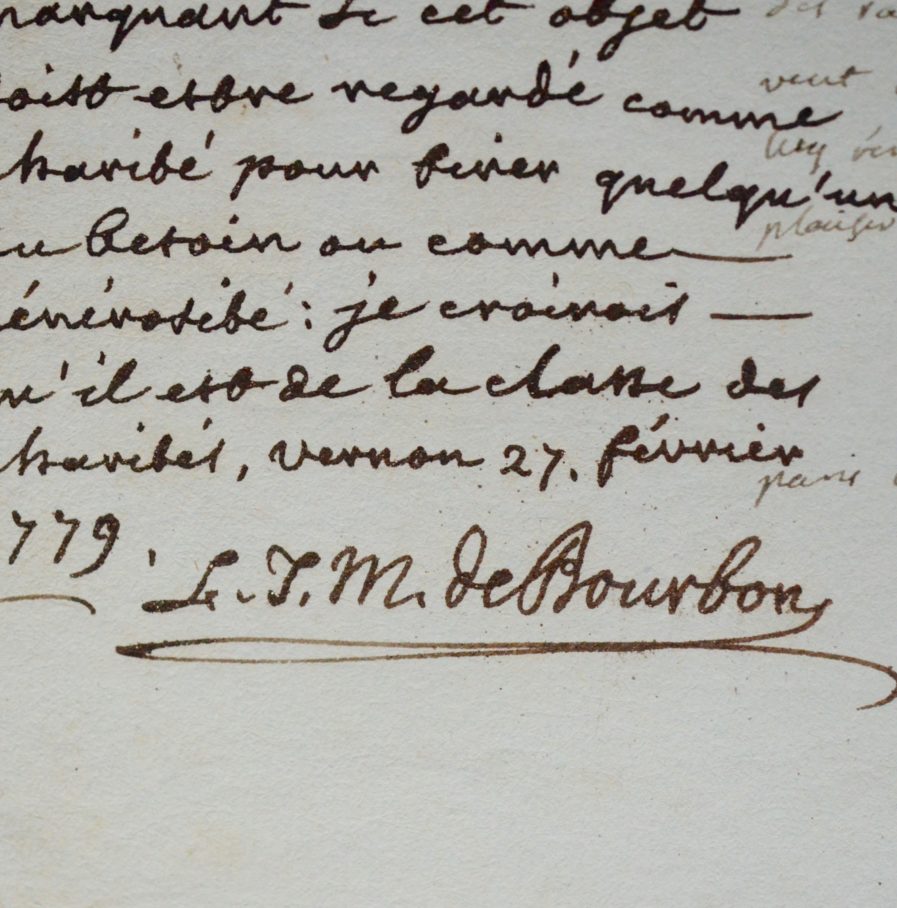 marquant si cet objet
doist estre regardé comme
charité pour tirer quelqu'un
du besoin ou comme
générosité : je croirois
qu'il est de la classe des
charités, vernon 27. février
1779.
L. J. M. de Bourbon
veut
plaisir